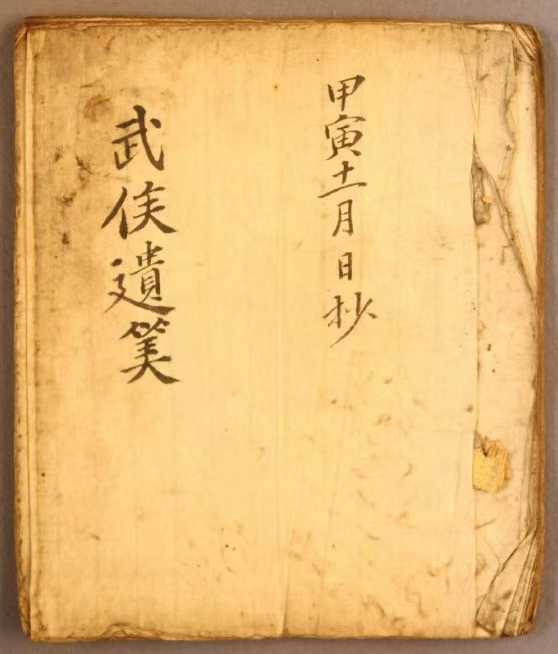 甲寅十一月日抄
武侯遺